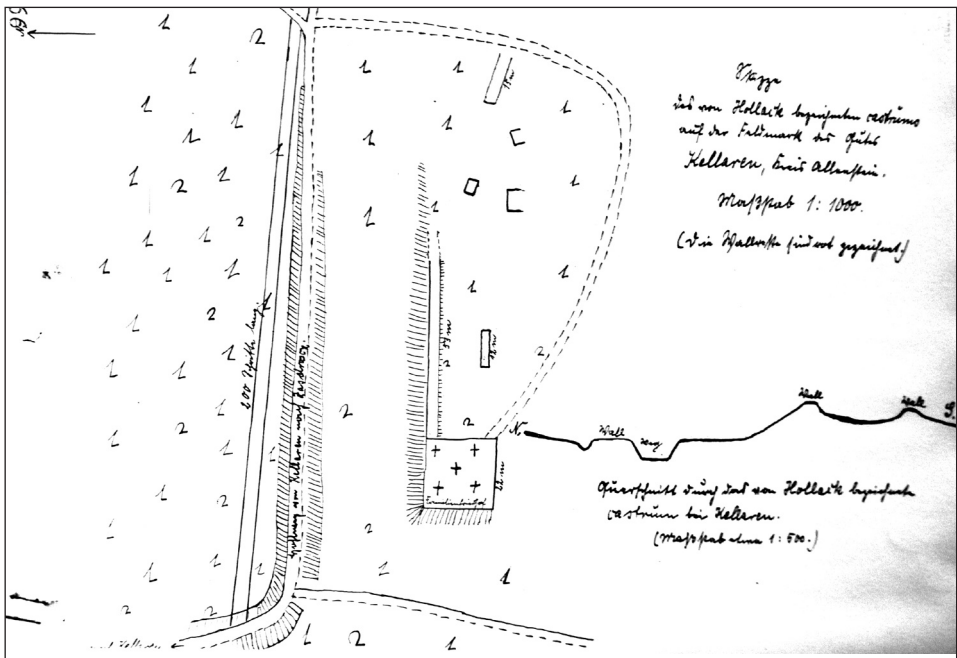 Skizze
des von Hollack bezeichneten castrums
auf der Feldmark des Gutes
Kellaren, Kreis Allenstein.
Maßstab 1:1000.
(Die Wallreste sind rot gezeichnet.)
200 Schritte lang
von Kellaren nach
18 m
54 m
12 m
22 m
N.
Wall
Weg
Wall
Wall
S.
Querschnitt durch das von Hollack bezeichnete
castrum bei Kellaren.
(Maßstab etwa 1:500.)